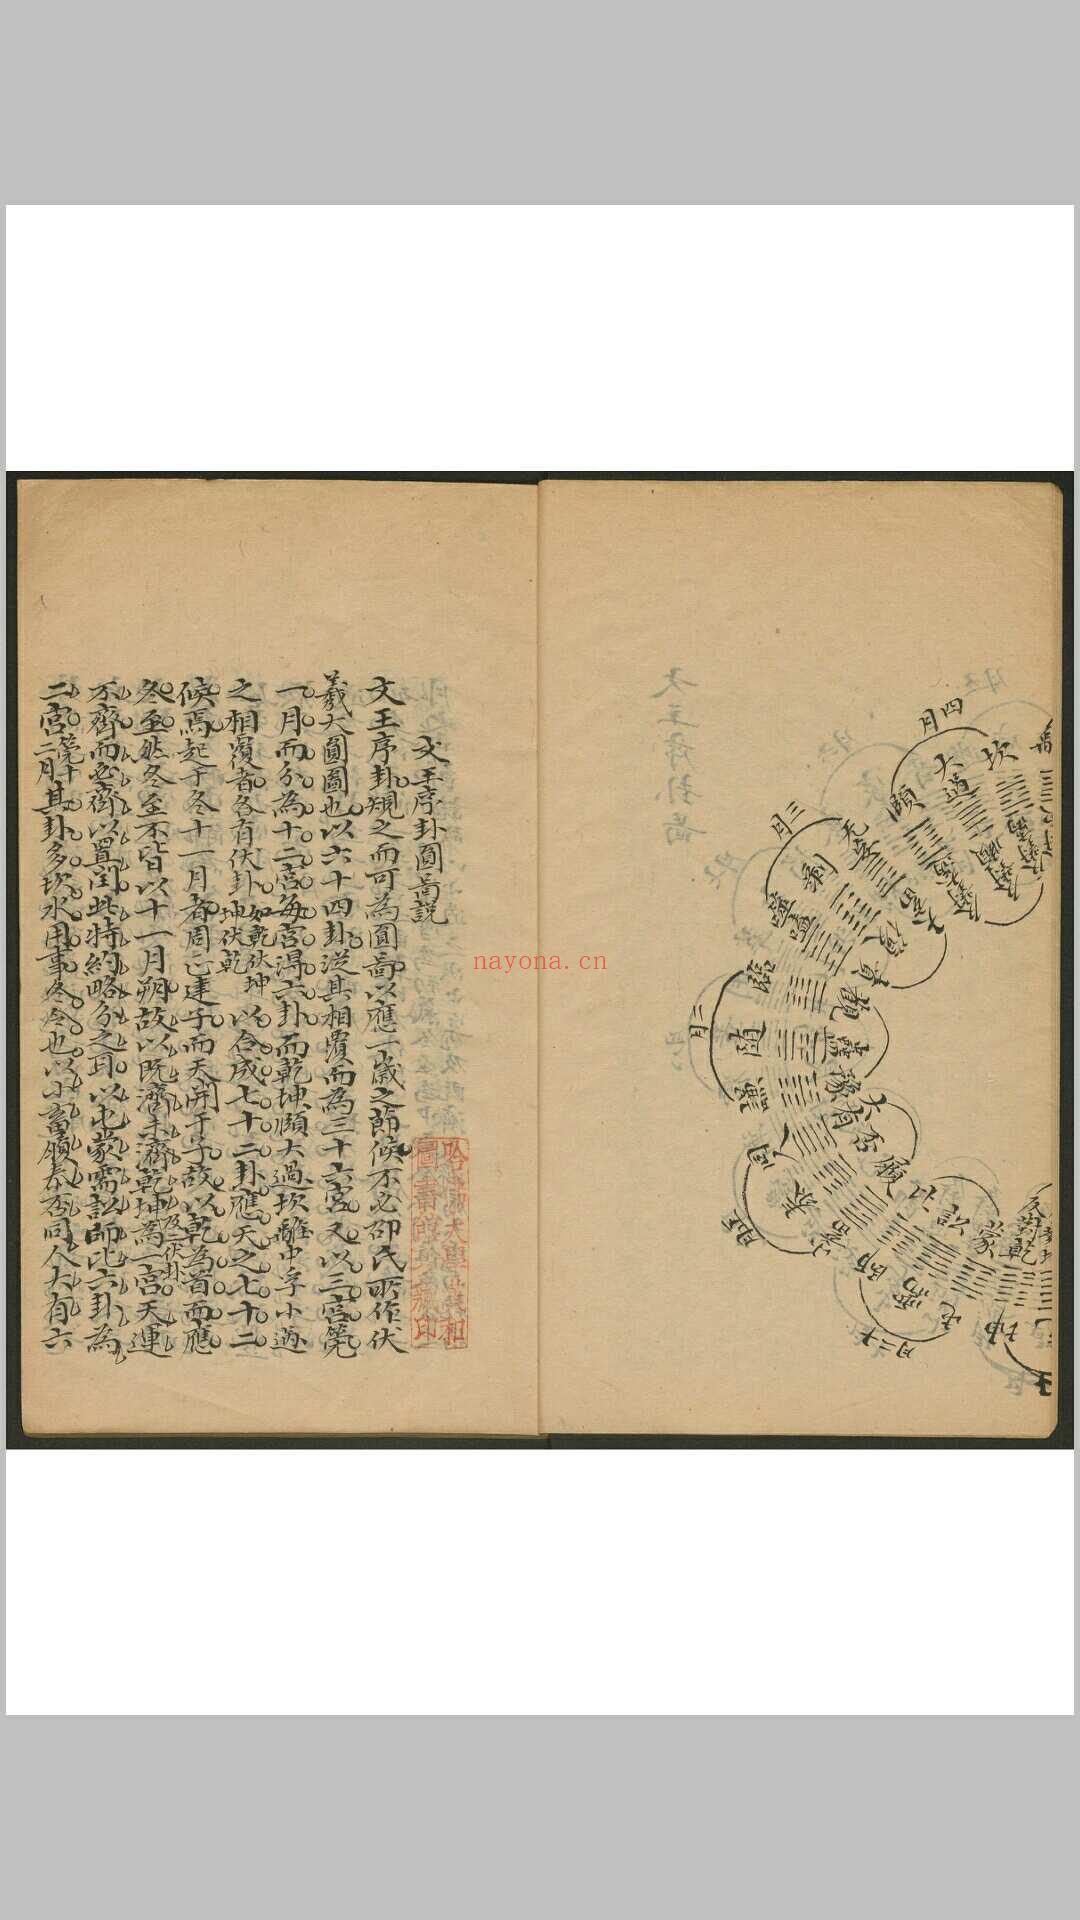 文王序卦圓啚説
文王序卦規之而可為圓啚以應一歲之節候不必邵氏所作伏
羲大圓圖也以六十四卦從其相覆而為三十六宮又以三宮筦
一月而分為十二宮每宮得六卦而乾坤頤大過坎離中孚小過
之相覆者各有伏卦如乾伏坤坤伏乾以合成七十二卦應天之七十二
候焉起于冬十一月者周正建子而天開于子故以乾為首而應
冬至然冬至不皆以十一月朔故以既濟未濟乾坤為一宮及二伏卦天運
不齊而必齊以置閏此特約略分之耳以屯蒙需訟師比六卦為
二宮筦十二月其卦多坎水用事冬令也以小畜履泰否同人大有六
四月
坎
大過
頤
三月
无妄
剝
噬嗑
大畜
復
賁
觀
臨
二月
隨
蠱
豫
大有
同人
否
泰
履
小畜
正月
比
師
訟
需
蒙
屯
十二月
坤
乾
nayona.cn